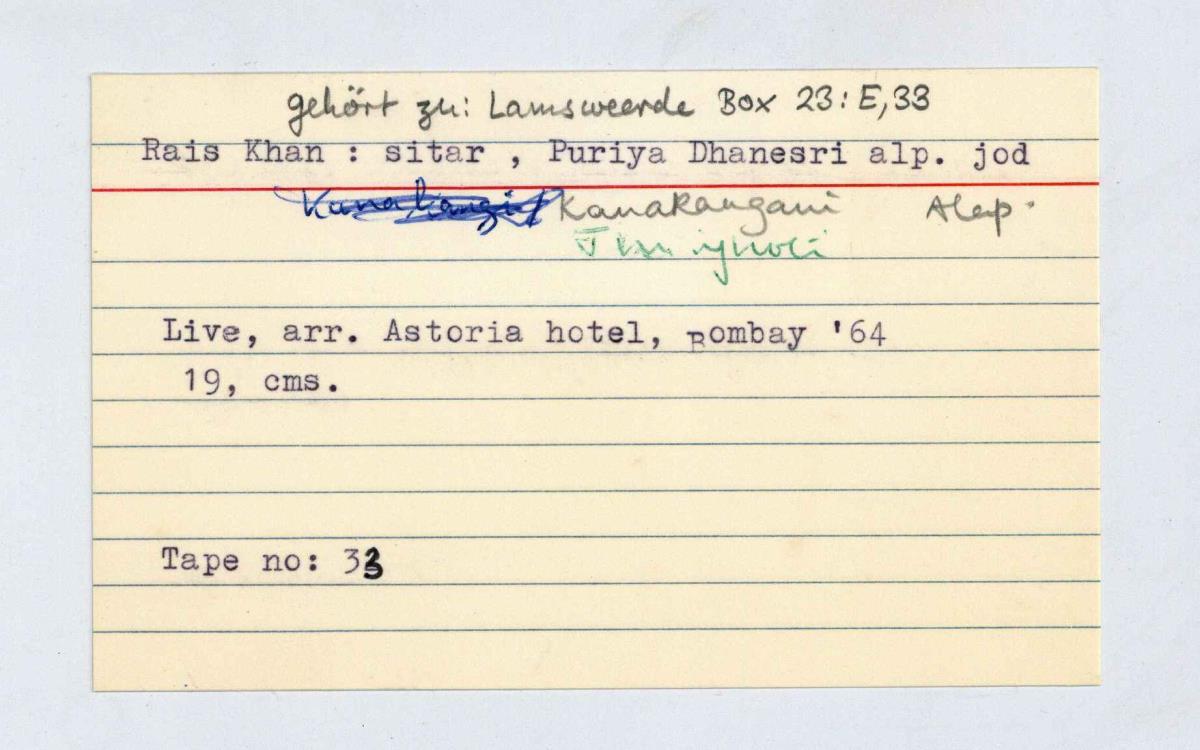 gehört zu: Lamsweerde Box 23: E, 33
Rais Khan : sitar , Puriya Dhanesri alp. jod
Kanakangani Alap.
Live, arr. Astoria hotel, Bombay '64
19, cms.
Tape no: 33